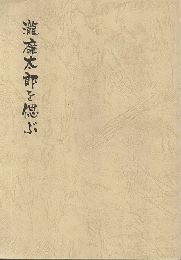 瀧廉太郎を偲ぶ